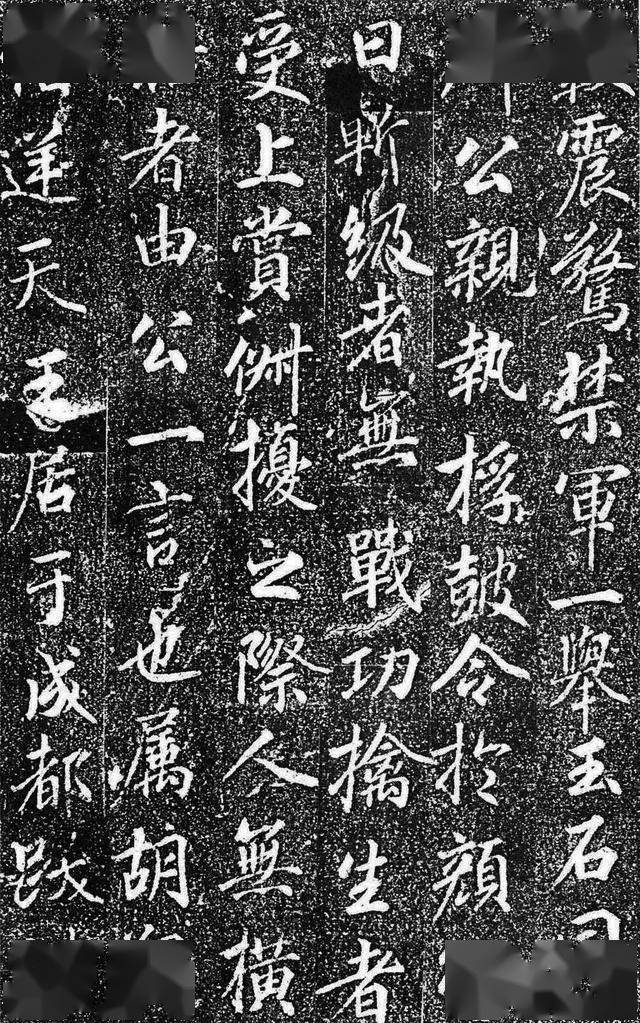 震驚禁軍一舉玉石
公親執桴皷令於顏
曰斬級者無戰功擒生者
受上賞俶擾之際人無橫
者由公一言也属胡
逆天王居于成都踐